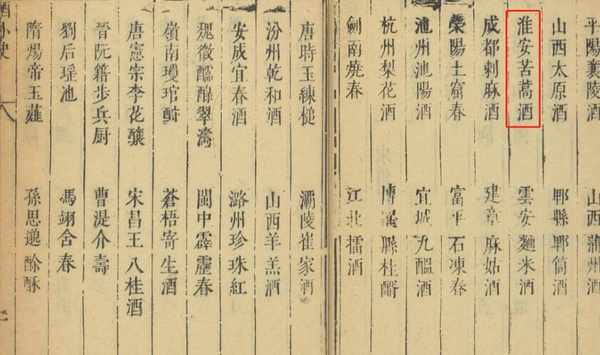 平陽襄陵酒
山西蒲州酒
山西太原酒
郫縣郫筒酒
淮安苦蒿酒
雲安麴米酒
成都刺麻酒
建章麻姑酒
滎陽土窟春
富平石凍春
池州池陽酒
宜城九醞酒
杭州梨花酒
博羅縣桂醑
劍南燒春
江北擂酒
唐時玉練槌
灞陵崔家酒
汾州乾和酒
山西羊羔酒
安成宜春酒
潞州珍珠紅
魏徵醽醁翠濤
閩中霹靂春
嶺南瓊琯酧
蒼梧寄生酒
唐憲宗李花釀
宋昌王八桂酒
晉阮籍步兵厨
曹湜介壽
劉后瑶池
馮翊含春
隋煬帝玉薤
孫思邈酴酥